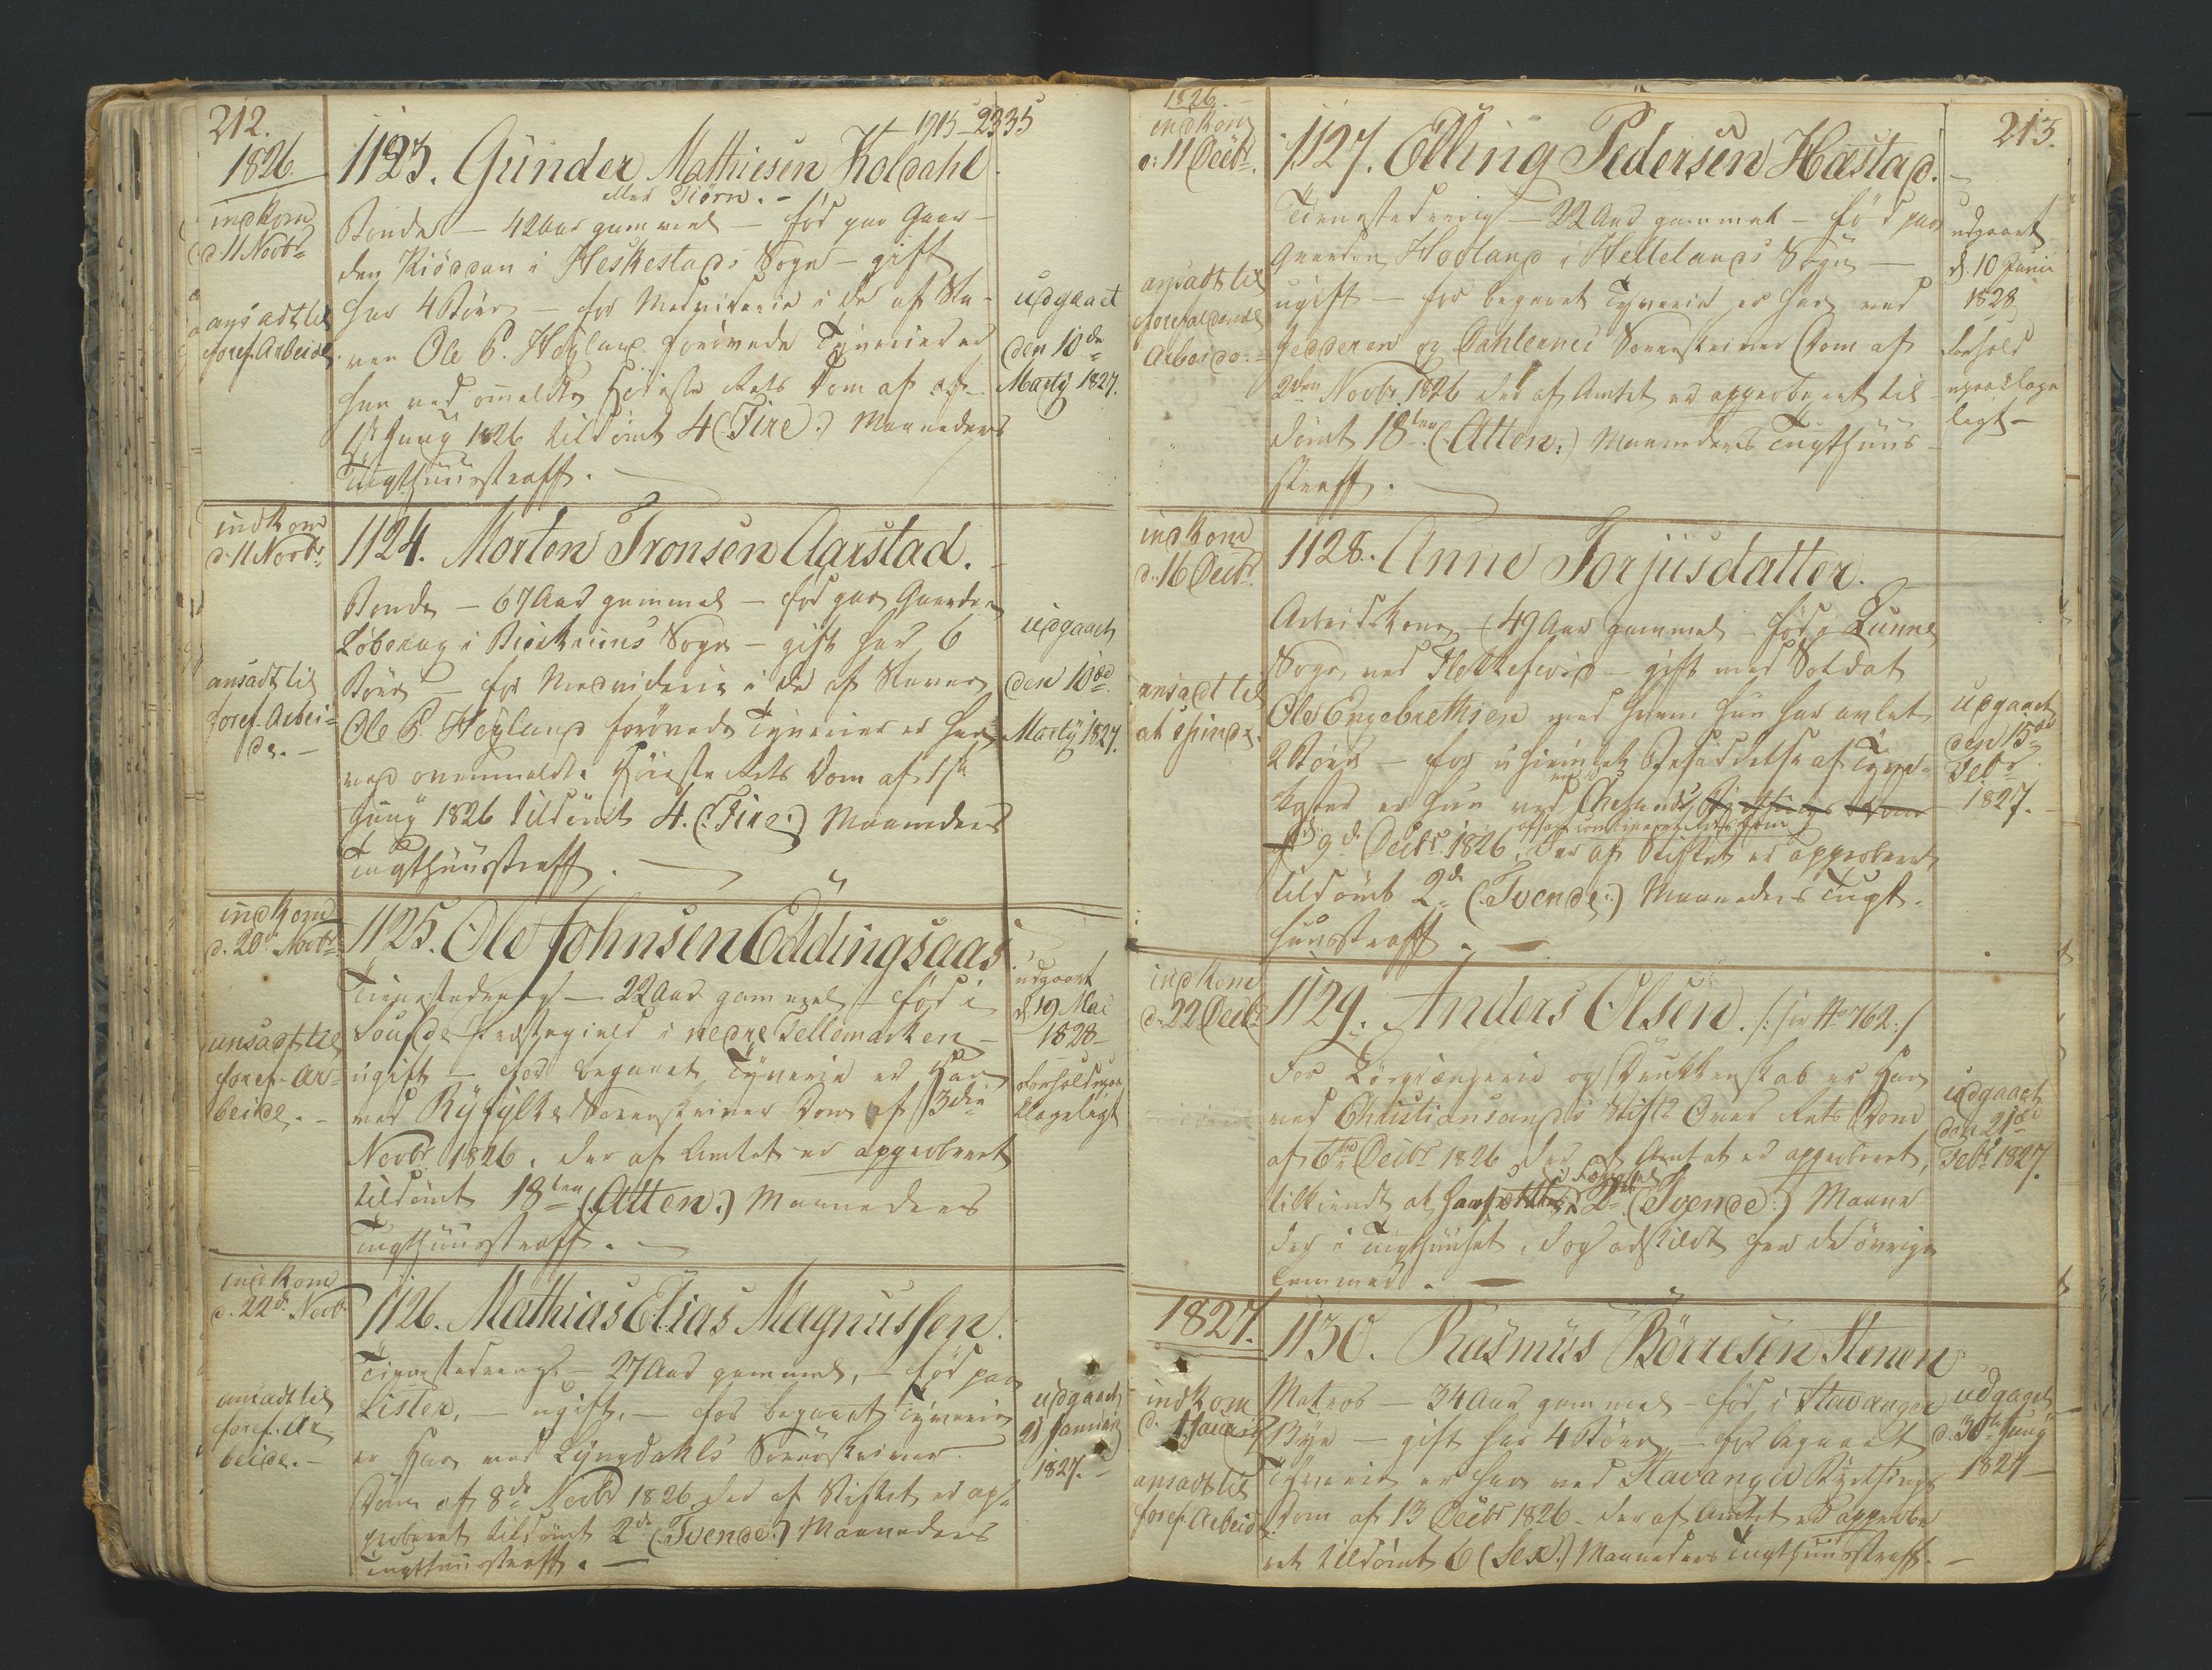 212.
1826.
indkom
d 11 Novbr
ansadt til
foref. Arbeide.
1915-2335
1123. Gunder Mathiesen Koldahl
eller Tiørn. -
Bonde - 42 Aar gammel - fød paa Gaar-
den Kiøddan i Heskestads Sogn - gift
har 4 Børn - for Medviderie i de af Sla-
ven Ole P. Høyland forøvede Tyverier er
han ved omeldte Høieste Rets Dom af
1ste Junÿ 1826 tildømt 4 (Fire:) Maaneders
Tugthuusstraff. -
udgaaet
den 10de
Martÿ 1827.
indkom
d. 11 Novbr
ansadt til
foref. Arbei-
de. -
1124. Morten Tronsen Aarstad. -
Bonde - 67 Aar gammel - fød paa Gaarden
i Bierkriems Sogn - gift har 6
Børn - for Medviderie i de af Slaven
Ole P. Høyland forøvede Tyverier er han
ved ovenmeldte Høieste Rets Dom af 1ste
Junÿ 1826 tildømt 4. (:Fire:) Maaneders
Tugthuusstraff. -
udgaaet
den 10de
Martÿ 1827.
indkom
d. 20de Novbr
ansadt til
foref. Ar-
beide. -
1125. Ole Johnsen Eddingsaas
Tienestedreng - 22 Aar gammel - fød i
Præstegield i nedre Tellemarken -
ugift - for begaaet Tyverie er Han
ved Ryfylke Sorenskriver Dom af 3die
Novbr 1826, der af Amtet er approberet
tildømt 18ten (:Atten:) Maaneders
Tugthuusstraff. -
udgaaet
d. 19 Mai
1828 -
forhold upaa
klageligt
indkom
d. 22de Novbr
ansadt til
foref. Ar
beide. -
1126. Mathias Elias Magnussen.
Tienestedreng - 27 Aar gammel, - fød paa
Lister, - ugift, - for begaaet Tyverie
er Han ved Lyngdahls Sorenskriver
Dom af 8de Novbr 1826 der af Stiftet er ap-
proberet tildømt 2de (:Tvende:) Maaneders
Tugthuusstraff. -
udgaaet
21 Januar
1827. -
1826. -
indkom
d: 11 Decbr.
ansadt til
forefaldende
Arbeide. -
1127. Elling Pedersen Hæstad. -
Tienestedreng - 22 Aar gammel - fød paa
Gaarden Hovland i Hellelands Sogn -
ugift - for begaaet Tyverie er han ved
Jedderen og Dahlernes Sorenskriver Dom af
2den Novbr 1826 der af Amtet er approberet til
dømt 18ten (:Atten:) Maaneders Tugthuus-
straff. -
213.
udgaaet
d. 10 Junii
1828
Forhold
upaaklage
ligt -
indkom
d. 16 Decbr.
ansadt til
at spinde.
1128. Anne Torjusdatter. -
Arbeidskone - 49 Aar gammel - fød i Lunne
Sogn ved Flekkefiord - gift med Soldat
Ole Engebrethsen med hvem hun har avlet
2 Børn - for uhiemlet Besiddelse af Tyve-
koster er hun ved
9de Decbr. 1826, der af Stiftet er approberet
tildømt 2de (:Tvende:) Maaneders Tugt-
huusstraff. -
udgaaet
den 15de
Febr
1827. -
indkom
d. 22 Decbr
1129. Anders Olsen. /: see No 762:/
For Løsgiængerie og Drukkenskab er Han
ved Christiansands Stifts Over Rets Dom
af 6te Decbr 1826 der af Amtet er approberet,
tilkiendt at 2de (:Tvende:) Maane
der i Tugthuuset, dog adskildt fra de øvrige
Lemmer. -
udgaaet
den 21de
Febr 1827.
1827.
indkom
d. 1 Januar
ansadt til
foref. Arbeid
1130. Rasmus Børresen Stenen
Matros - 34 Aar gammel - fød i Stavanger
Bye - gift har 4 Børn, - for begaaet
Tyverie er han ved Stavanger Byethings
Dom af 13 Decbr 1826 - der af Amtet er approbe
ret tildømt 6 (Sex:) Maaneders Tugthuusstraff. -
udgaaet
d. 30te Junÿ
1827 -